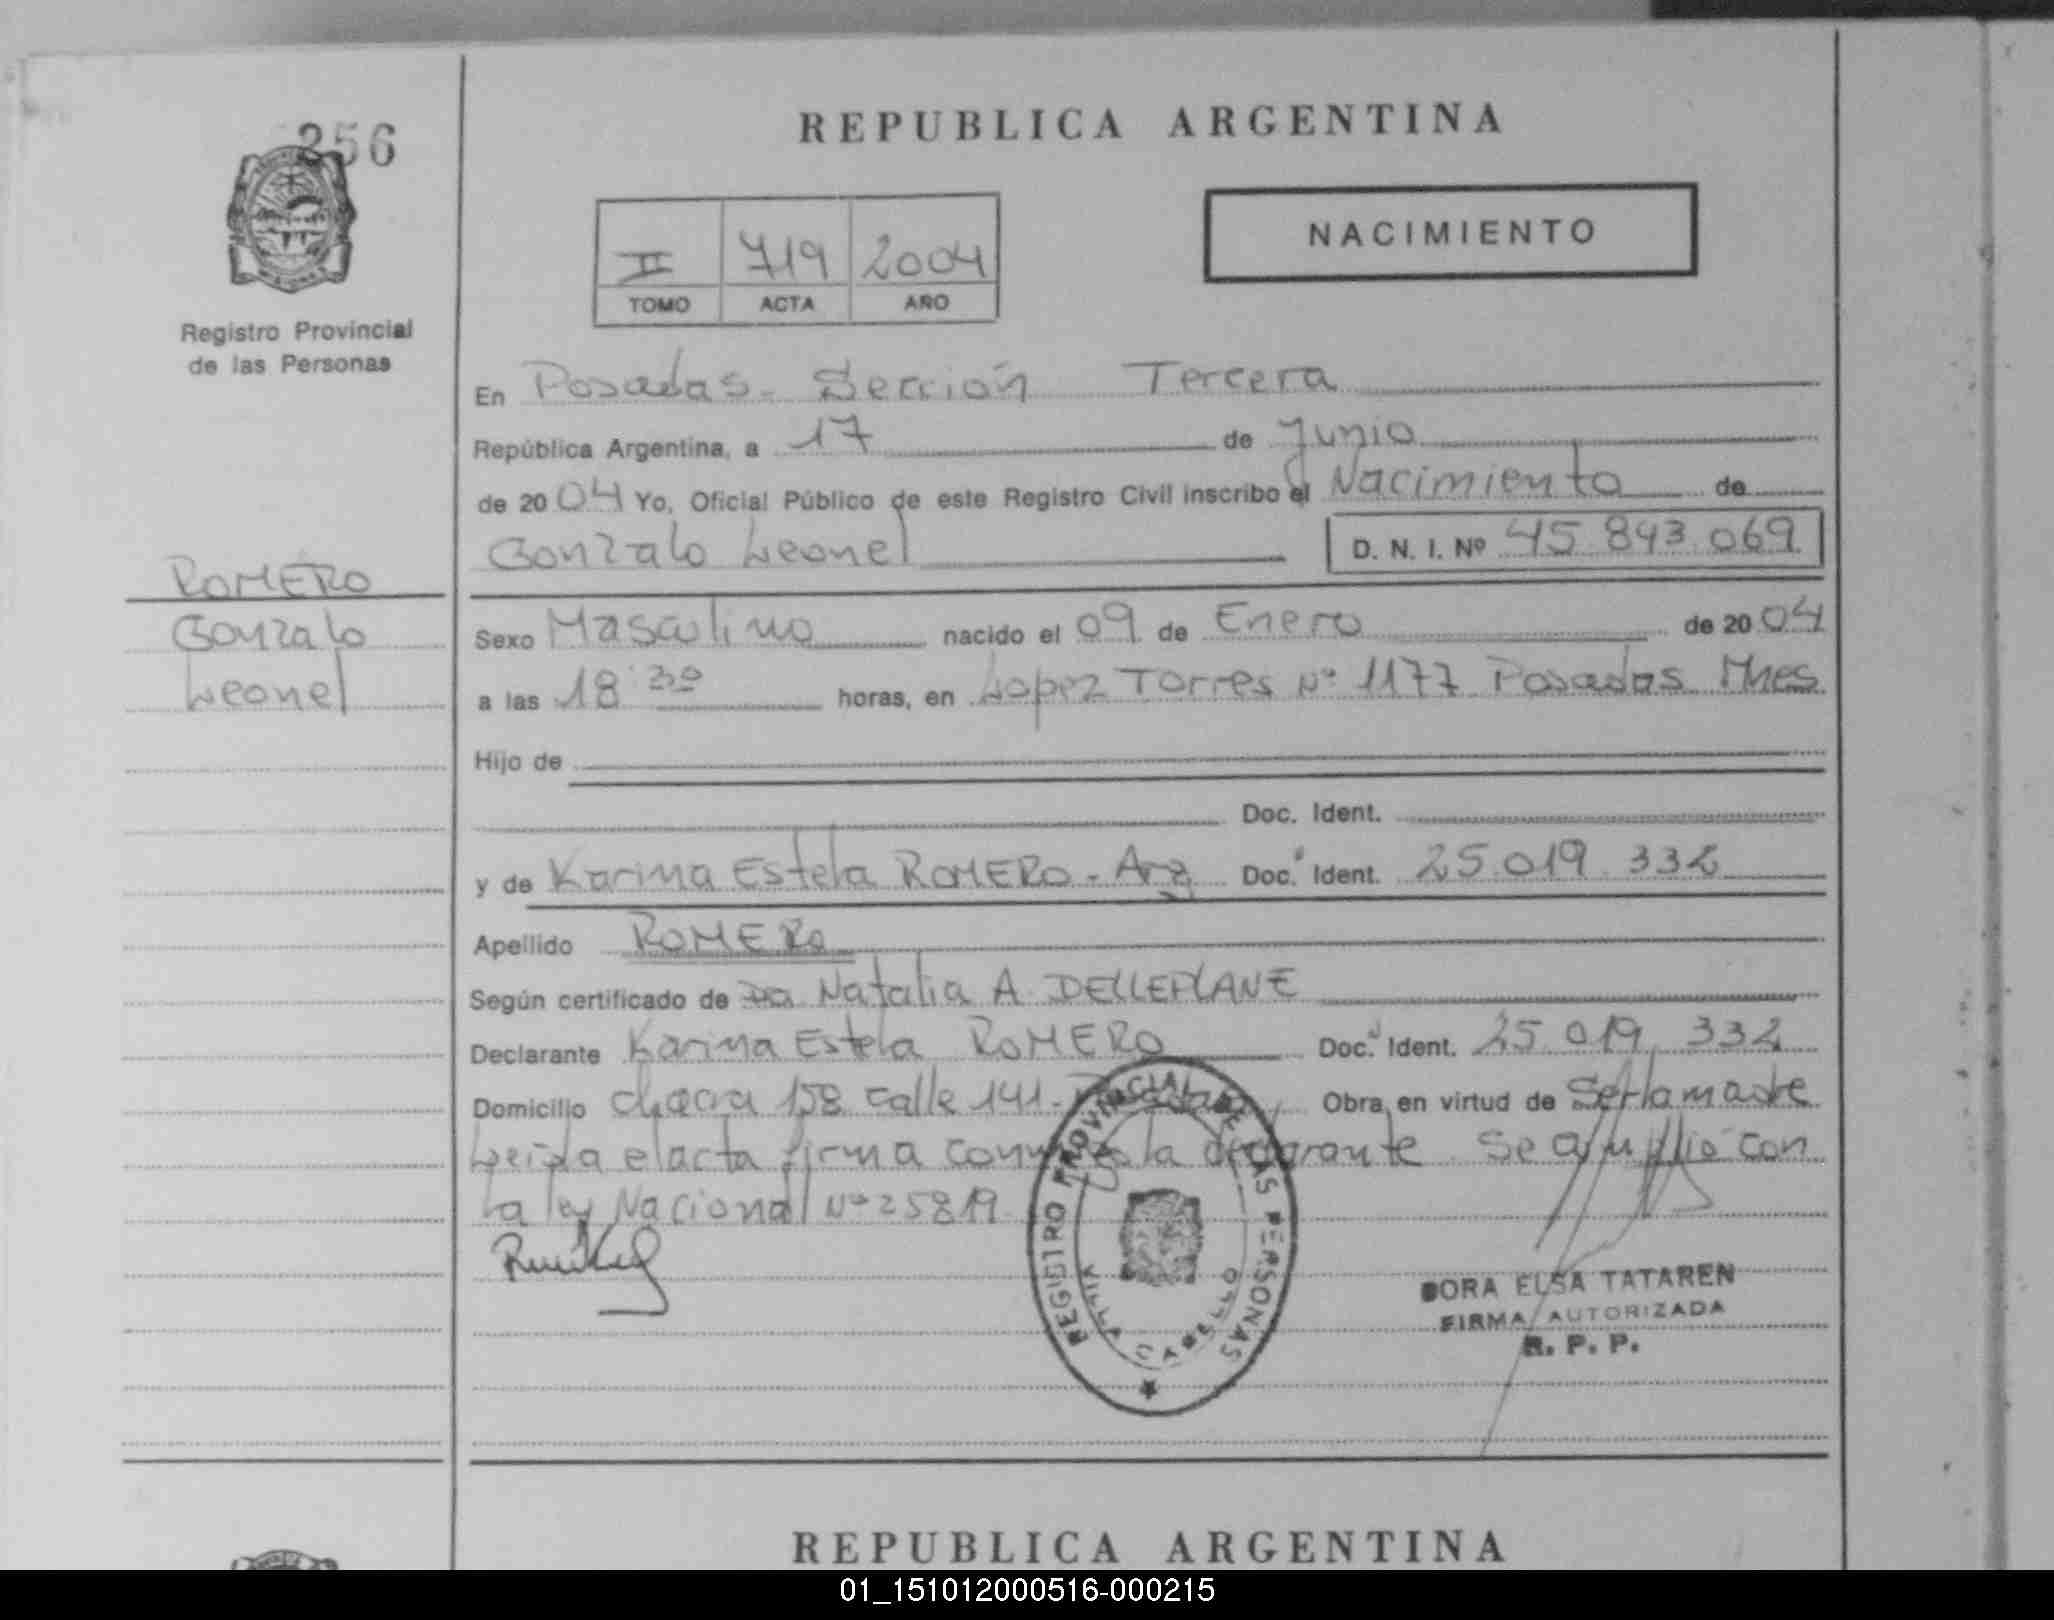 256
REPUBLICA ARGENTINA
II 719 2004
TOMO ACTA AÑO
NACIMIENTO
Registro Provincial
de las Personas
En Posadas - Sección Tercera
República Argentina, a 17 de Junio
de 2004 Yo, Oficial Público de este Registro Civil inscribo el Nacimiento de
Gonzalo Leonel D. N. I. Nº 45.843.069
ROMERO
Gonzalo
Leonel
Sexo Masculino nacido el 09 de Enero de 2004
a las 18:30 horas, en Lopez Torres Nº 1177 Posadas Mnes
Hijo de
Doc. Ident.
y de Karina Estela ROMERO - Arg Doc. Ident. 25.019.332
Apellido ROMERO
Según certificado de Da Natalia A. DELLEPIANE
Declarante Karina Estela ROMERO Doc. Ident. 25.019.332
Domicilio chacra 158 calle 141 - Obra en virtud de Ser la madre
Leida el acta firma la declarante Se amplió con
la ley Nacional Nº 25819
REGISTRO PROVINCIAL DE LAS PERSONAS
VILLA CABELLO
DORA ELSA TATAREN
FIRMA AUTORIZADA
R. P. P.
REPUBLICA ARGENTINA
01_151012000516-000215